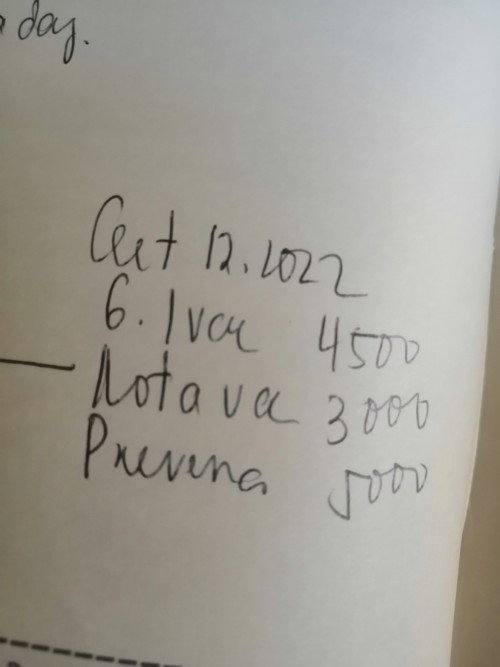 a day.
12.2022
6. 1 vac 4500
Rota va 3000
Prevena 5000